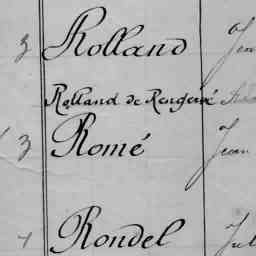 3 Rolland Jean
Rolland de Rengervé
3 Romé Jean
Rondel Jul